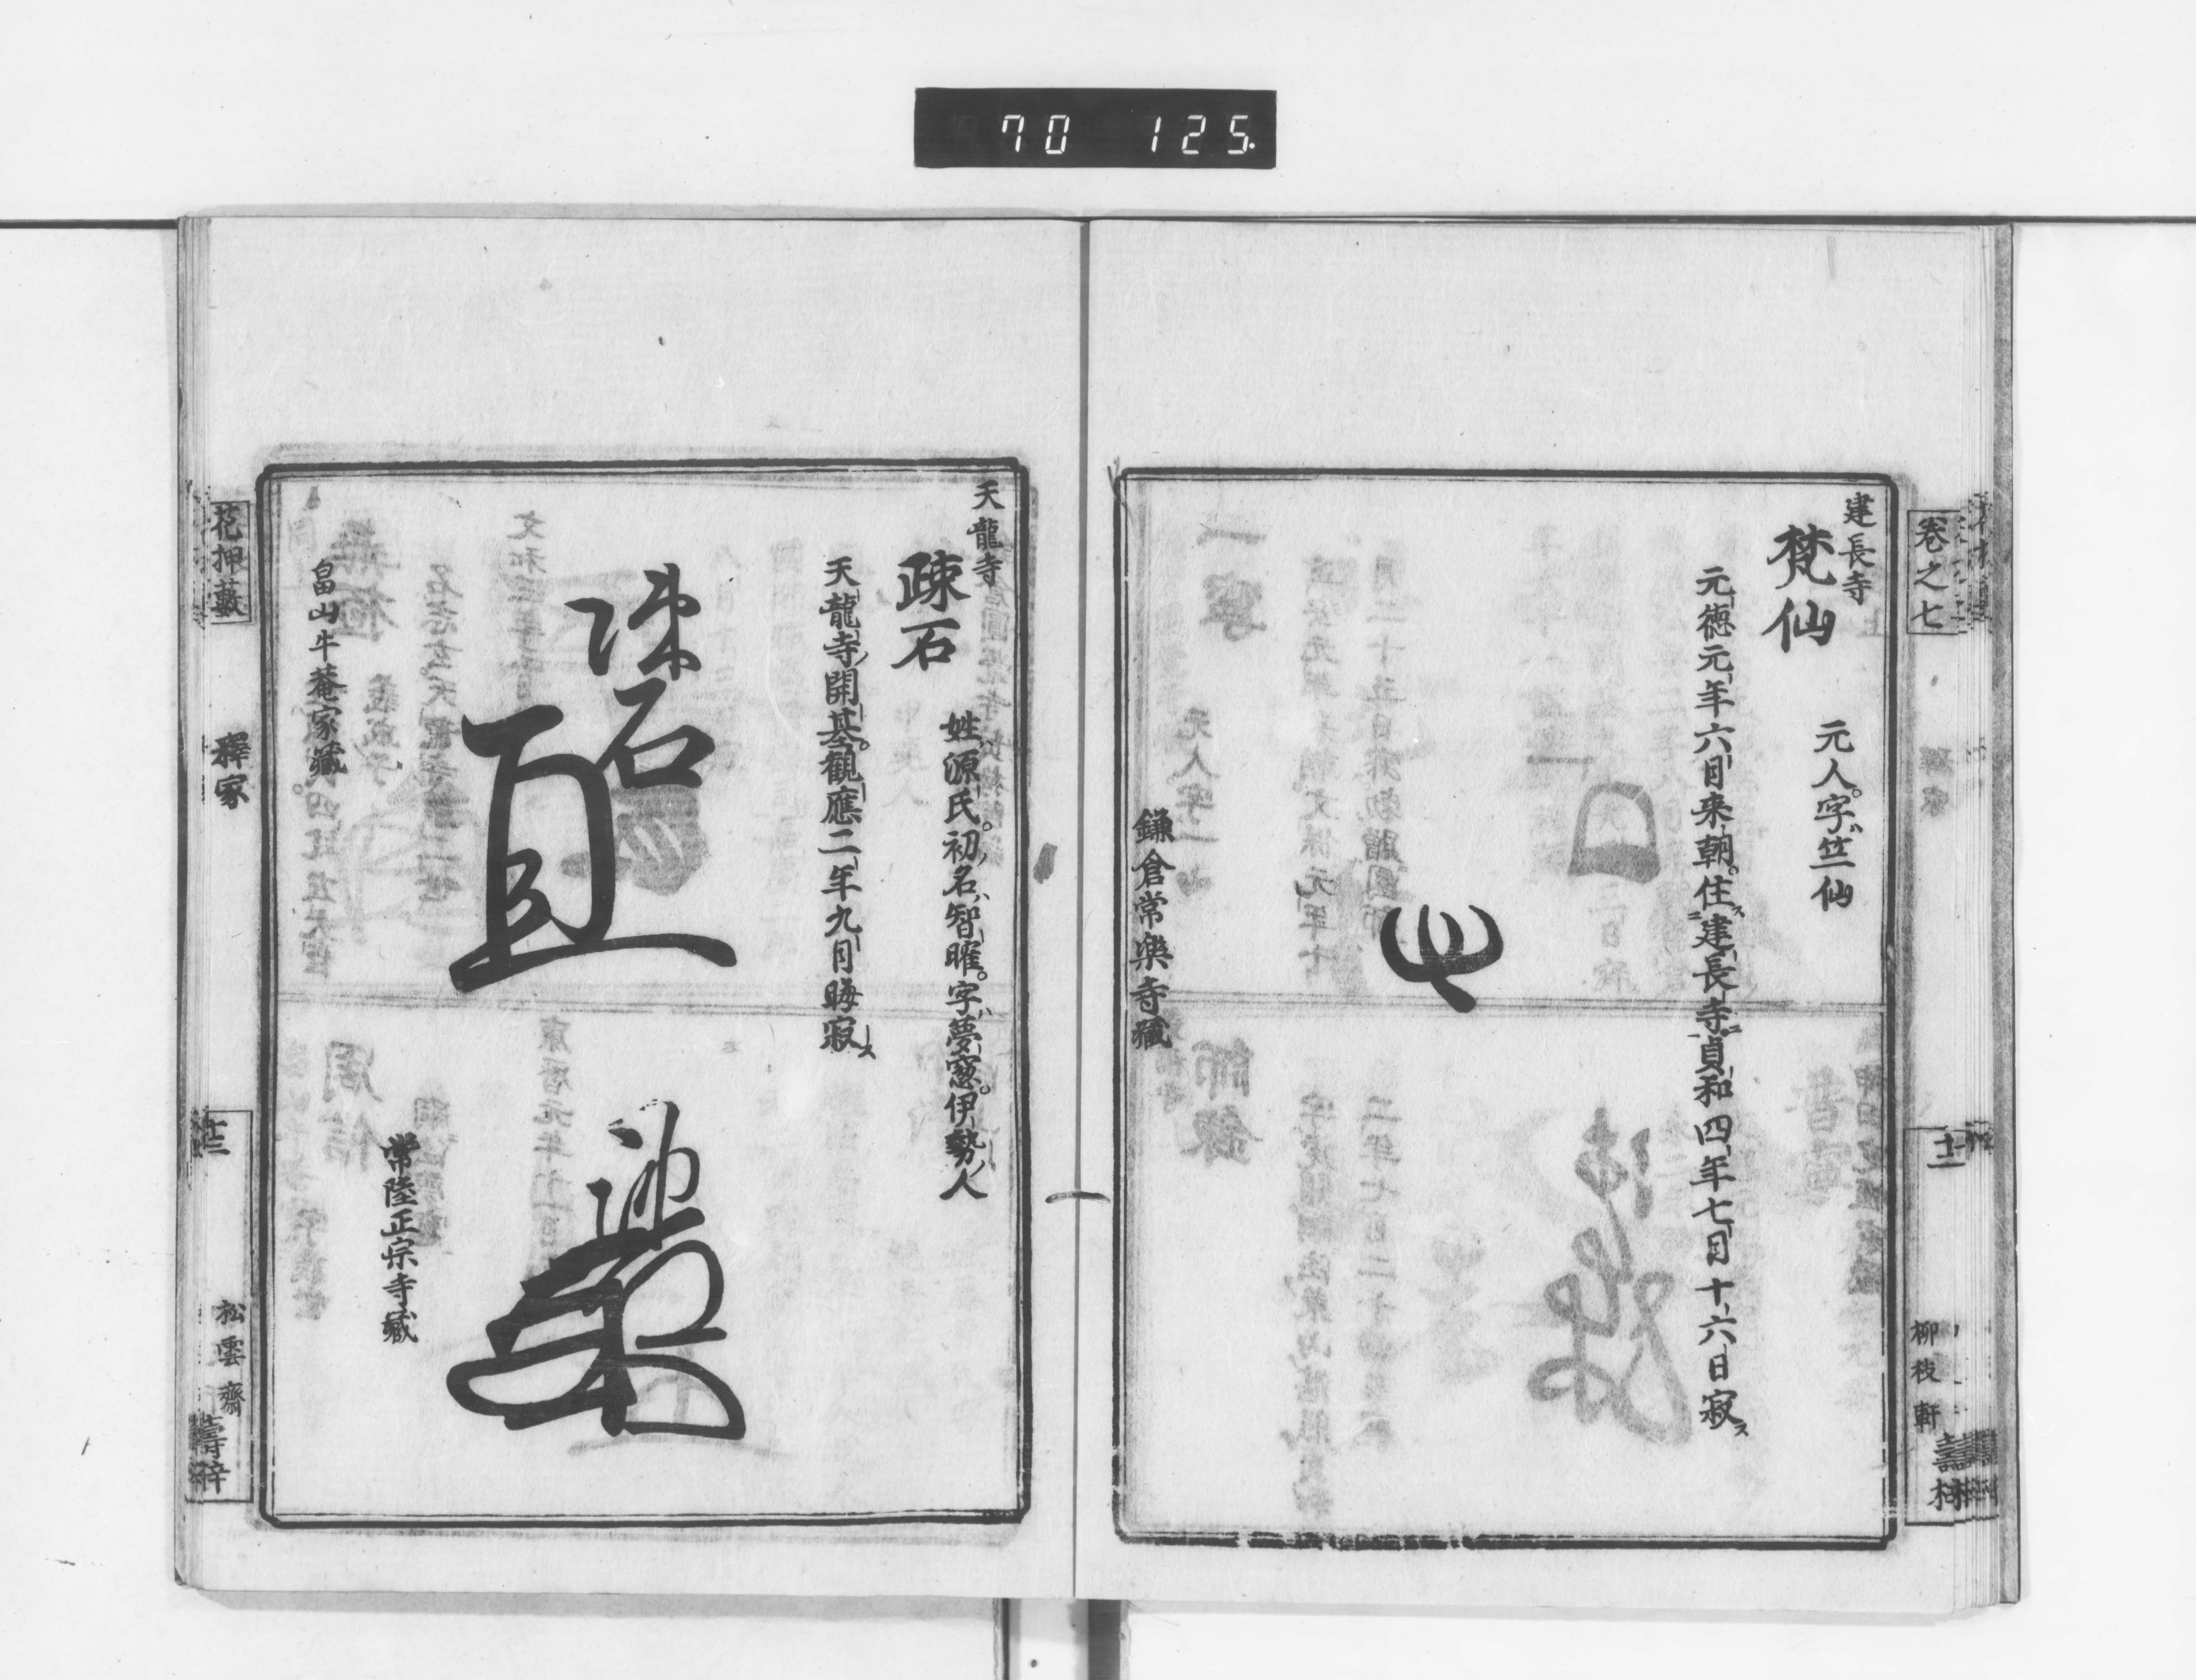 70 125
卷之七
十二
柳枝軒
建長寺
梵仙
元人字竺仙
元徳元年六月来朝住建長寺貞和四年七月十六日寂ス
鎌倉常樂寺藏
天龍寺
疎石
姓源氏初名智曜字夢窓伊勢人
天龍寺開基觀應二年九月晦寂ス
疎石
常陸正宗寺藏
畠山牛菴家藏
花押藪
釋家
十三
松雲齋
壽梓